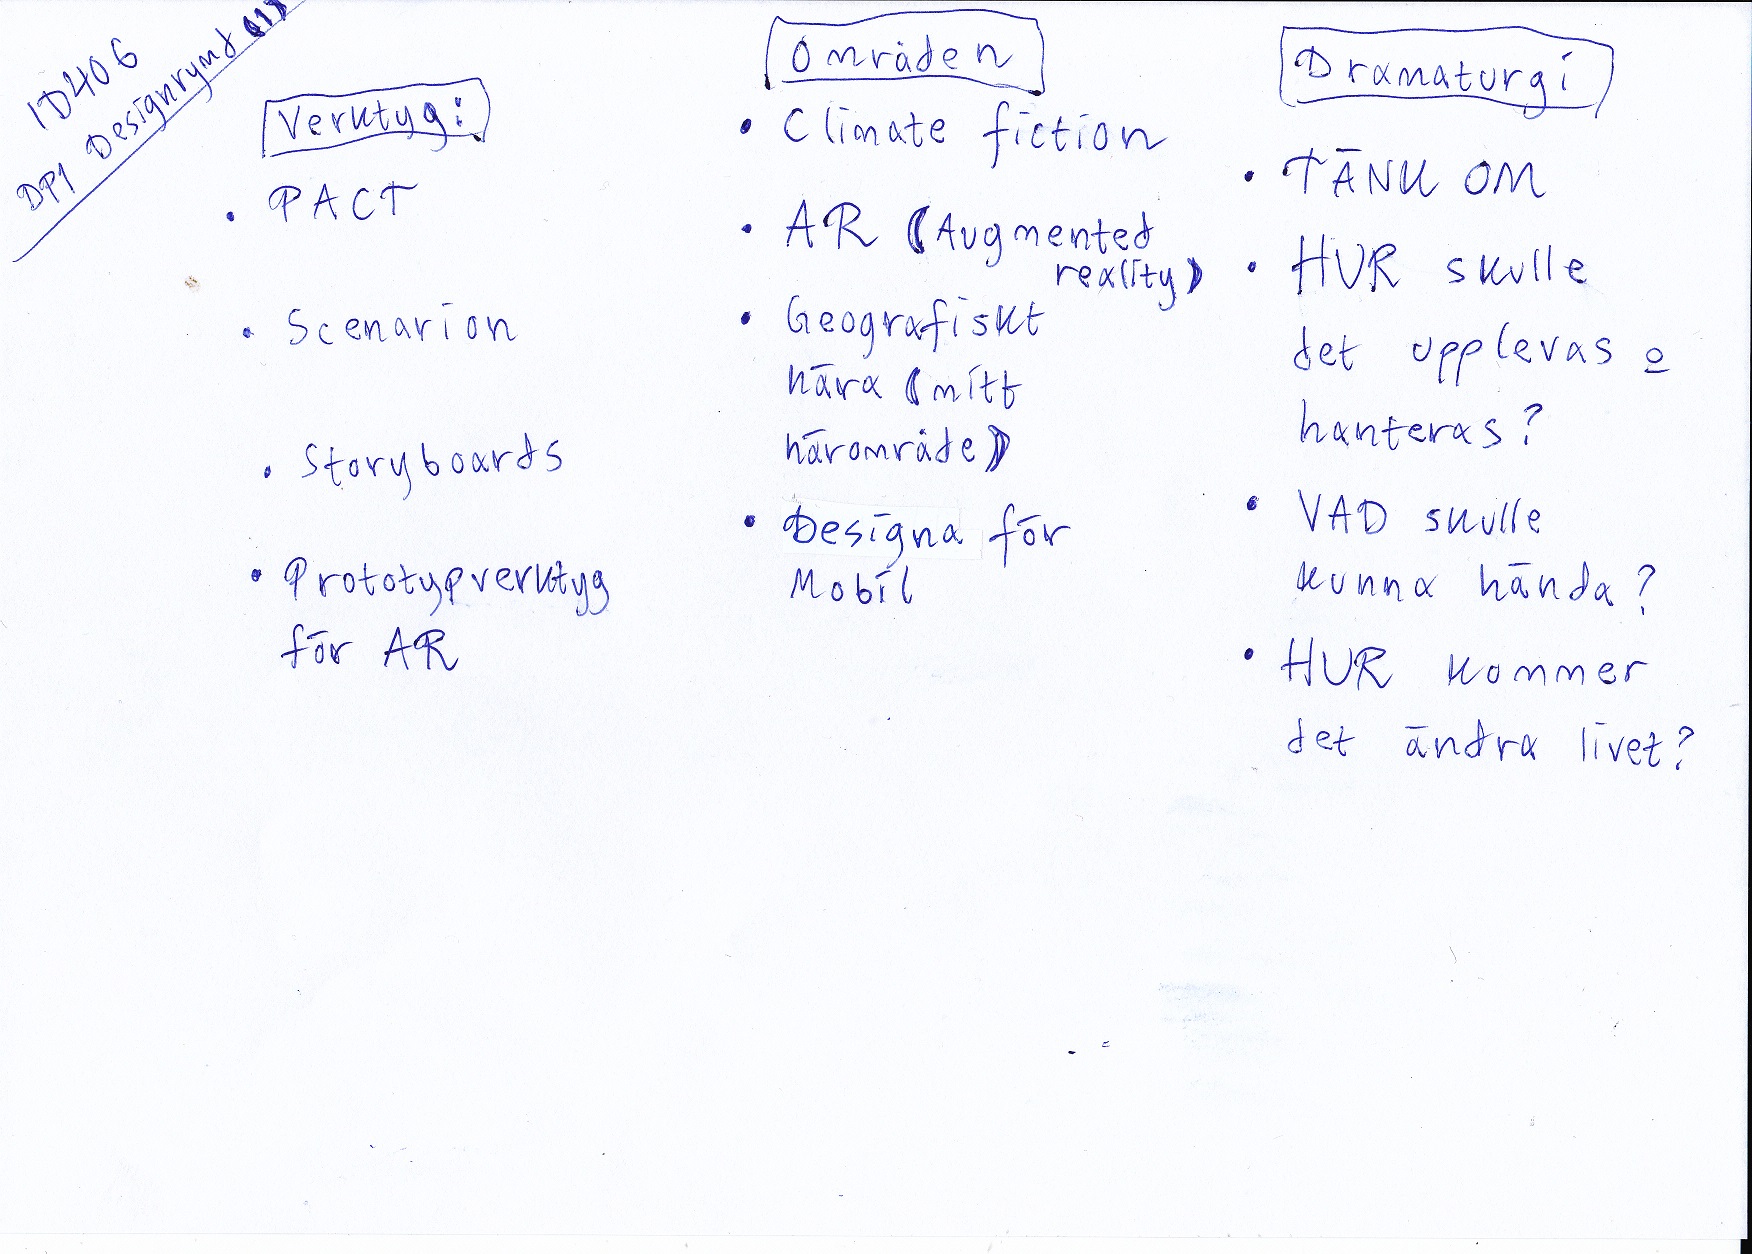 ID406
DP1 Designrymd (1)
Verktyg:
• PACT
• Scenarion
• Storyboards
• Prototypverktyg
för AR
Områden
• Climate fiction
• AR (Augmented
reality)
• Geografiskt
nära (mitt
närområde)
• Designa för
Mobil
Dramaturgi
• TÄNK OM
• HUR skulle
det upplevas o
hanteras?
• VAD skulle
kunna hända?
• HUR kommer
det ändra livet?